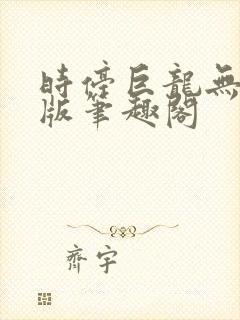 時停巨龍無
版筆趣閣
齊宇